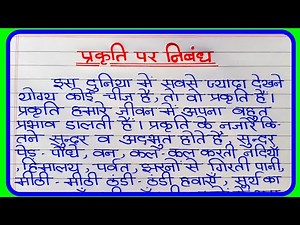 प्रकृति पर निबंध
इस दुनिया में सबसे ज्यादा देखने
योग्य कोई चीज है, तो वो प्रकृति है।
प्रकृति हमारे जीवन में अपना बहुत
प्रभाव डालती हैं। प्रकृति के नजारे कि-
तने सुन्दर व अदभुत होते हैं, सुन्दर
पेड़- पौधे, वन, कल- कल करती नदियाँ
, हिमालय, पर्वत, झरनों से गिरती पानी,
मीठी- मीठी ठंडी- ठंडी हवाएँ, सूर्य का